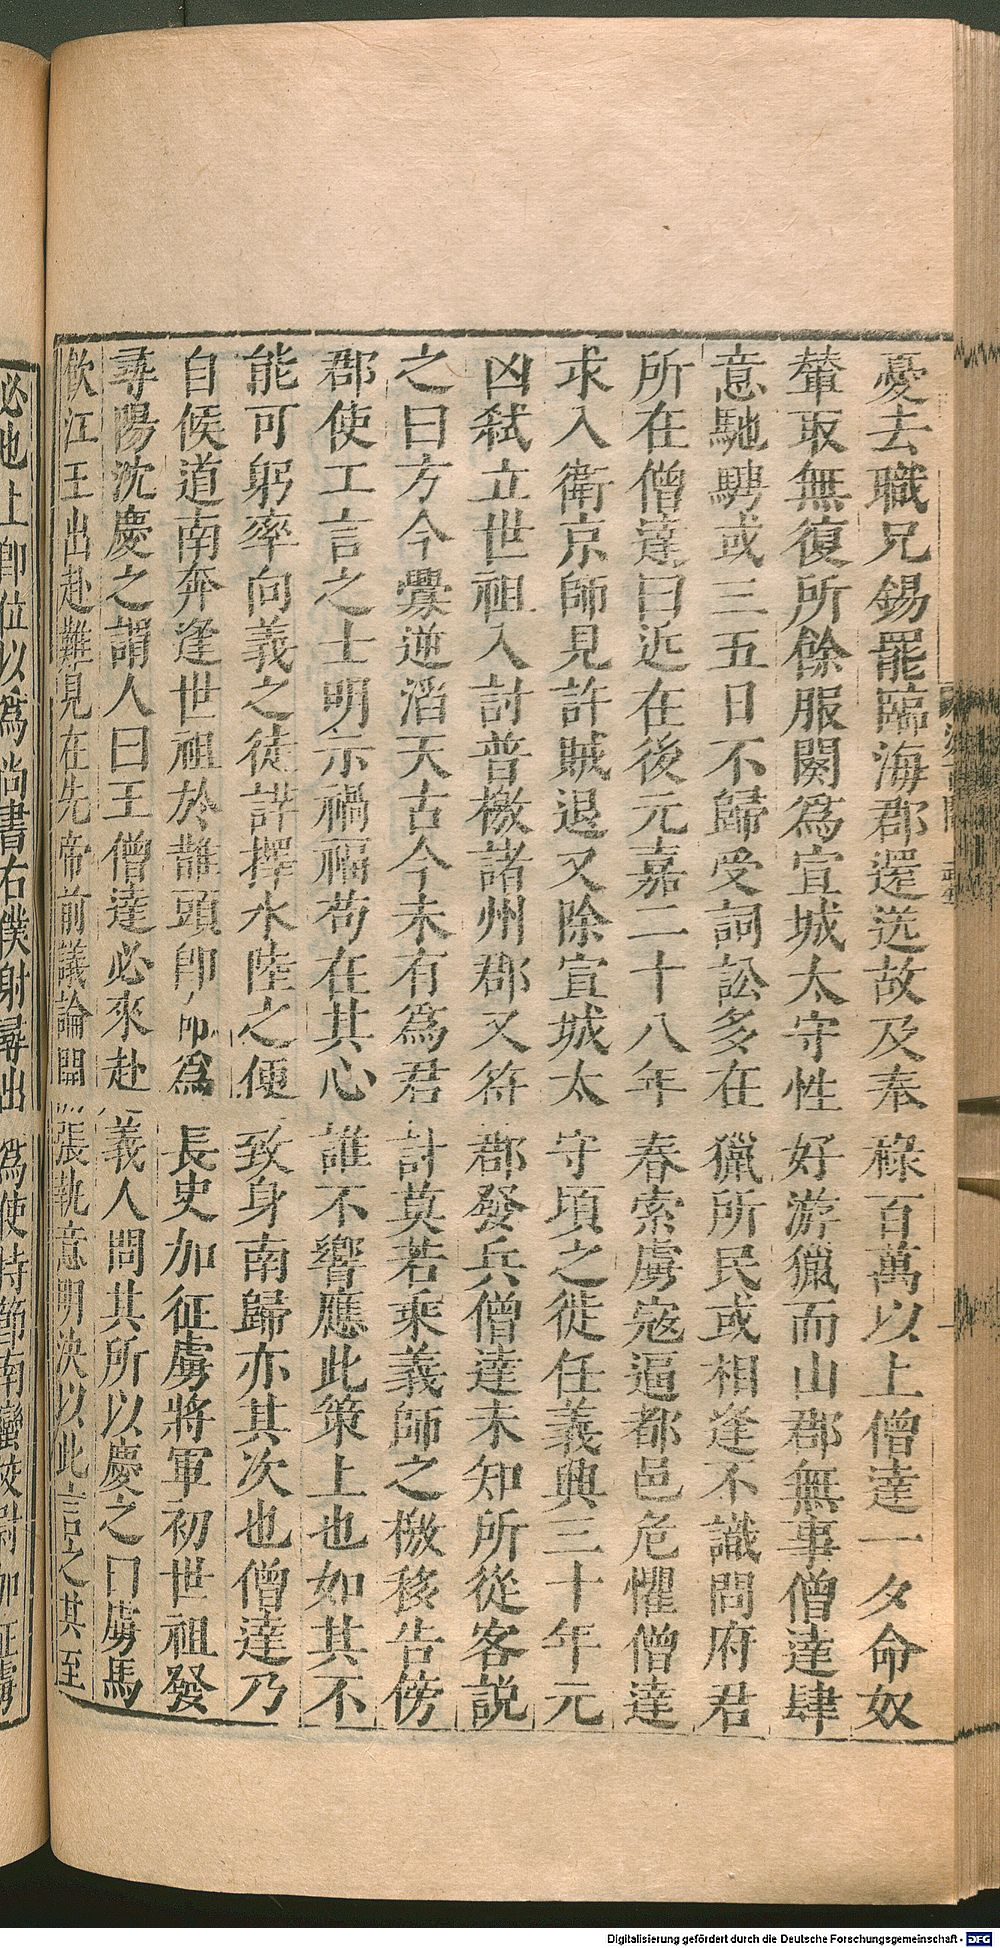 憂去職兄錫罷臨海郡還送故及奉祿百萬以上僧達一夕命奴
輦取無復所餘服闋爲宣城太守性好游獵而山郡無事僧達肆
意馳騁或三五日不歸受詞訟多在獵所民或相逢不識問府君
所在僧達曰近在後元嘉二十八年春索虜寇逼都邑危懼僧達
求入衛京師見許賊退又除宣城太守頃之徙任義興三十年元
凶弑立世祖入討普檄諸州郡又符郡發兵僧達未知所從客說
之曰方今釁逆滔天古今未有爲君討莫若乘義師之檄移告傍
郡使工言之士明示禍福苟在其心誰不響應此策上也如其不
能可躬率向義之徒詳擇水陸之便致身南歸亦其次也僧達乃
自候道南奔逢世祖於鵲頭即命爲長史加征虜將軍初世祖發
尋陽沈慶之謂人曰王僧達必來赴義人問其所以慶之曰虜馬
飲江王出赴難見在先帝前議論開張執意明決以此言之其至
必也上即位以爲尚書右僕射尋出爲使持節南蠻校尉加征虜
Digitalisierung gefördert durch die Deutsche Forschungsgemeinschaft - DFG